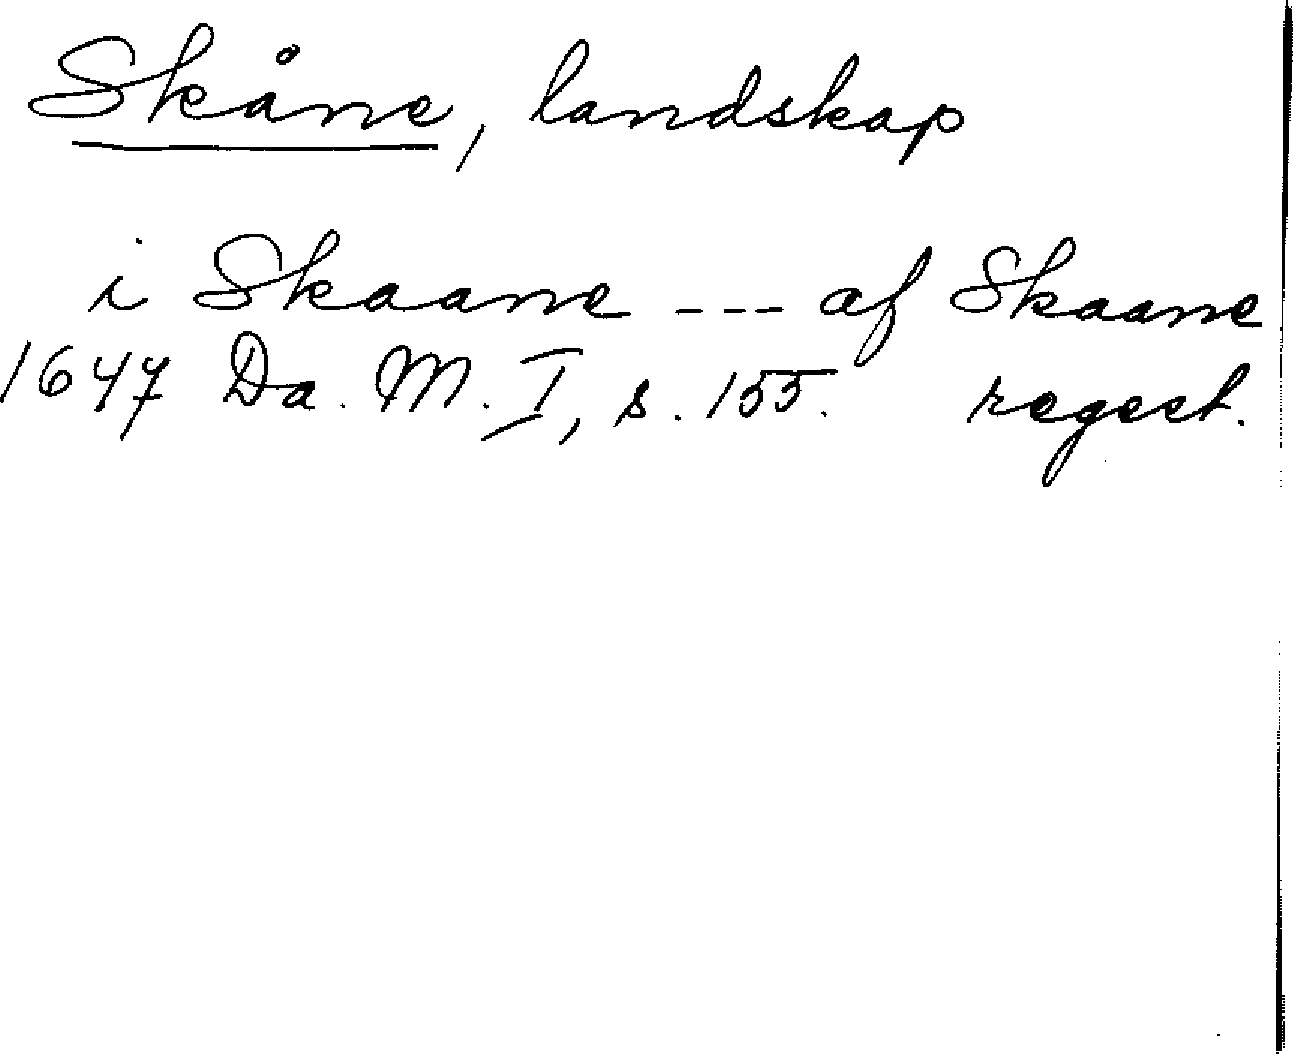 Skåne, landskap
i Skaane --- af Skaane
1647 Da. M. I, s. 155. regest.